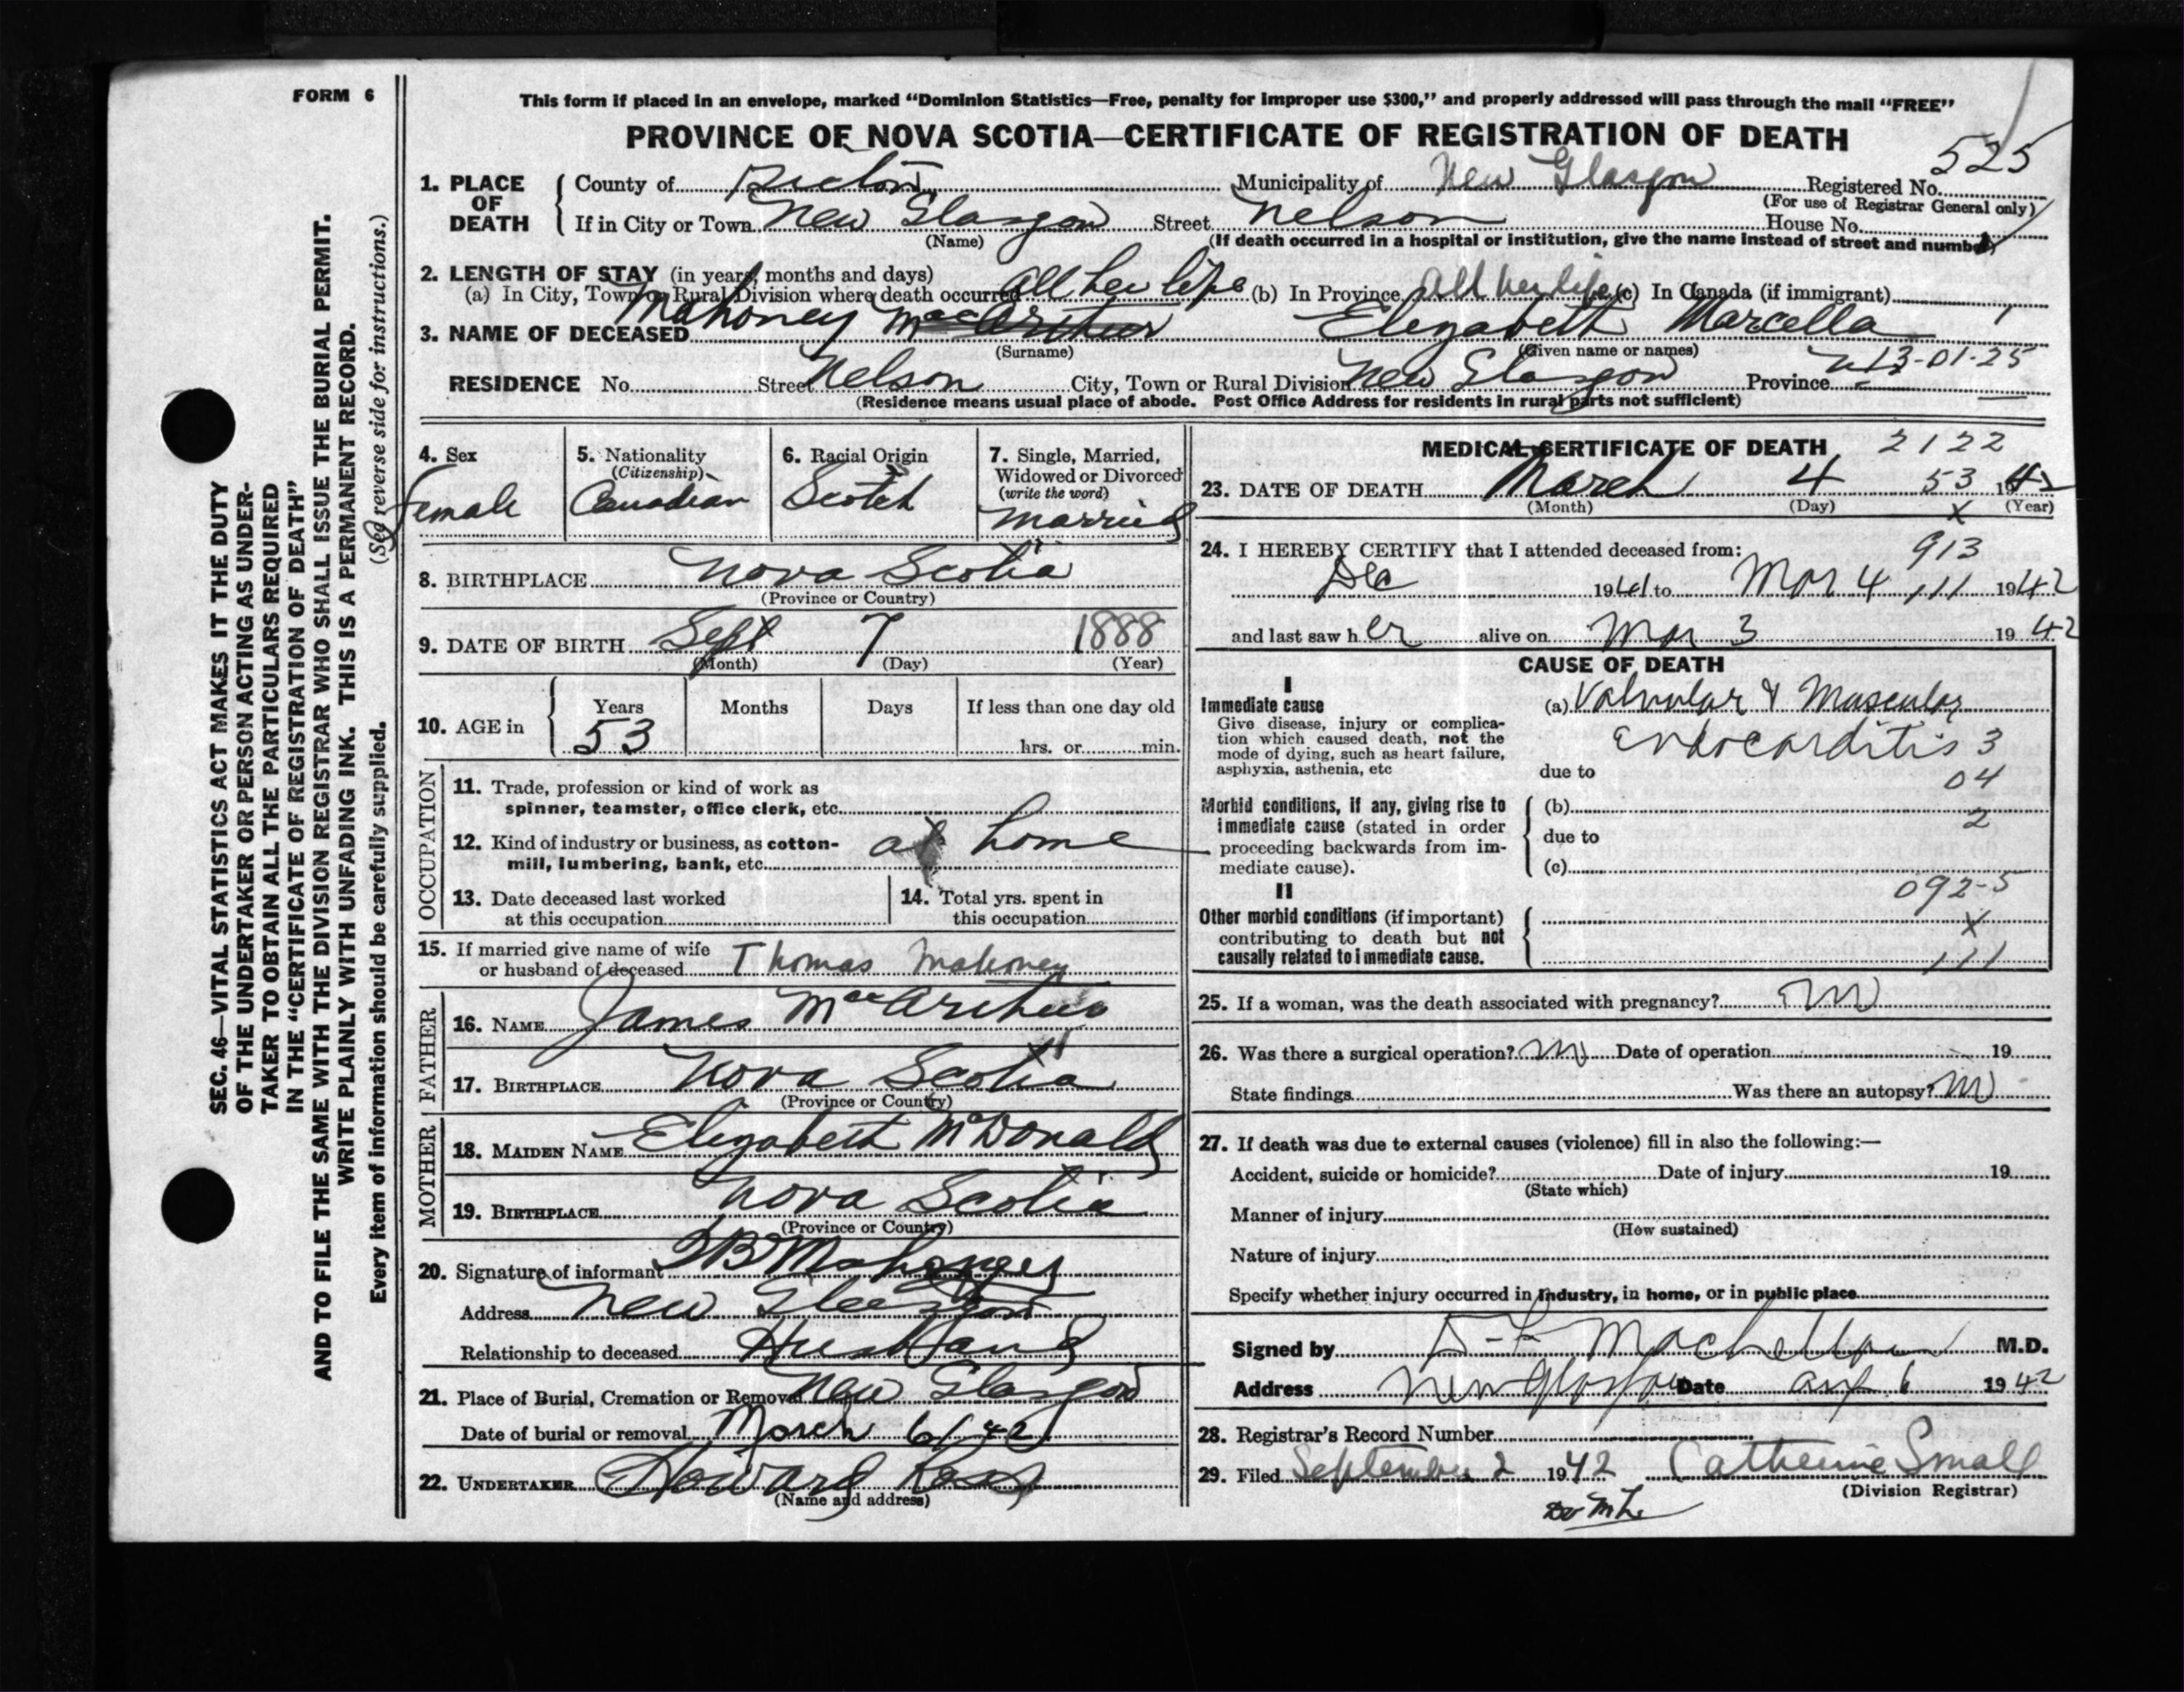 FORM 6
This form if placed in an envelope, marked “Dominion Statistics—Free, penalty for improper use $300,” and properly addressed will pass through the mail “FREE”
PROVINCE OF NOVA SCOTIA—CERTIFICATE OF REGISTRATION OF DEATH
525
1. PLACE OF DEATH { County of Pictou Municipality of New Glasgow Registered No.
(For use of Registrar General only)
If in City or Town New Glasgow Street Nelson House No.
(Name) (If death occurred in a hospital or institution, give the name instead of street and number)
2. LENGTH OF STAY (in years, months and days)
(a) In City, Town or Rural Division where death occurred all her life (b) In Province all her life (c) In Canada (if immigrant)
3. NAME OF DECEASED Mahoney MacArthur Elizabeth Marcella
(Surname) (Given name or names)
13-01-25
RESIDENCE No. Street Nelson City, Town or Rural Division New Glasgow Province
(Residence means usual place of abode. Post Office Address for residents in rural parts not sufficient)
4. Sex Female
5. Nationality (Citizenship) Canadian
6. Racial Origin Scotch
7. Single, Married, Widowed or Divorced (write the word) Married
8. BIRTHPLACE Nova Scotia
(Province or Country)
9. DATE OF BIRTH Sept 7 1888
(Month) (Day) (Year)
10. AGE in { Years Months Days If less than one day old
53 hrs. or min.
OCCUPATION
11. Trade, profession or kind of work as spinner, teamster, office clerk, etc.
12. Kind of industry or business, as cotton-mill, lumbering, bank, etc. at home
13. Date deceased last worked at this occupation
14. Total yrs. spent in this occupation
15. If married give name of wife or husband of deceased Thomas Mahoney
FATHER
16. NAME James MacArthur
17. BIRTHPLACE Nova Scotia
(Province or Country)
MOTHER
18. MAIDEN NAME Elizabeth McDonald
19. BIRTHPLACE Nova Scotia
(Province or Country)
20. Signature of informant Mahoney
Address New Glasgow
Relationship to deceased Husband
21. Place of Burial, Cremation or Removal New Glasgow
Date of burial or removal March 6/42
22. UNDERTAKER Howard Ross
(Name and address)
MEDICAL CERTIFICATE OF DEATH 2122
23. DATE OF DEATH March 4 53 1942
(Month) (Day) X (Year)
24. I HEREBY CERTIFY that I attended deceased from: 913
Dec 1941 to Mar 4 111 1942
and last saw her alive on Mar 3 1942
CAUSE OF DEATH
I
Immediate cause (a) Valvular & Muscular
Give disease, injury or complication which caused death, not the mode of dying, such as heart failure, asphyxia, asthenia, etc
Endocarditis 3
due to 04
Morbid conditions, if any, giving rise to immediate cause (stated in order proceeding backwards from immediate cause).
(b) 2
due to
(c)
II
092-5
Other morbid conditions (if important) contributing to death but not causally related to immediate cause.
X
111
25. If a woman, was the death associated with pregnancy? no
26. Was there a surgical operation? no Date of operation 19
State findings Was there an autopsy? no
27. If death was due to external causes (violence) fill in also the following:—
Accident, suicide or homicide? Date of injury 19
(State which)
Manner of injury
(How sustained)
Nature of injury
Specify whether injury occurred in industry, in home, or in public place
Signed by M.D.
Address New Glasgow Date 6 1942
28. Registrar's Record Number
29. Filed September 2 1942 Catherine Small
(Division Registrar)
SEC. 46—VITAL STATISTICS ACT MAKES IT THE DUTY
OF THE UNDERTAKER OR PERSON ACTING AS UNDER-
TAKER TO OBTAIN ALL THE PARTICULARS REQUIRED
IN THE “CERTIFICATE OF REGISTRATION OF DEATH”
AND TO FILE THE SAME WITH THE DIVISION REGISTRAR WHO SHALL ISSUE THE BURIAL PERMIT.
WRITE PLAINLY WITH UNFADING INK. THIS IS A PERMANENT RECORD.
Every item of information should be carefully supplied. (See reverse side for instructions.)